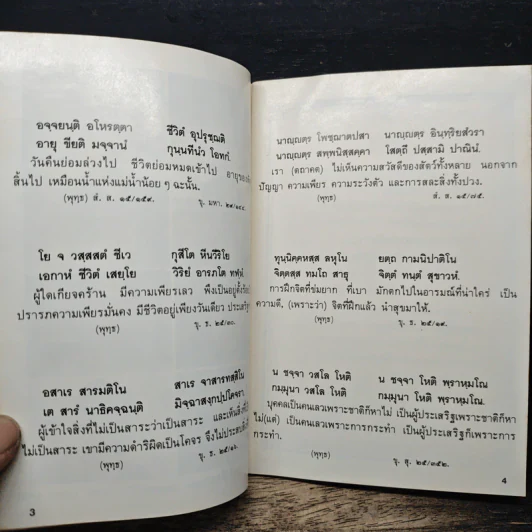 อจฺจยนฺติ อโหรตฺตา ชีวิตํ อุปรุชฺฌติ
อายุ ขียติ มจฺจานํ กุนฺนทีนํว โอทกํ.
วันคืนย่อมล่วงไป ชีวิตย่อมหมดเข้าไป อายุของ
สิ้นไป เหมือนน้ำแห่งแม่น้ำน้อย ๆ ฉะนั้น.
(พุทธ) สํ. ส. ๑๕/๑๕๙. ขุ. มหา. ๒๙/
โย จ วสฺสสตํ ชีเว กุสีโต หีนวีริโย
เอกาหํ ชีวิตํ เสยฺโย วิริยํ อารภโต ทฬฺหํ.
ผู้ใดเกียจคร้าน มีความเพียรเลว พึงเป็นอยู่ตั้ง
ปรารภความเพียรมั่นคง มีชีวิตอยู่เพียงวันเดียว ประเสริฐ
(พุทธ) ขุ. ธ. ๒๕/๓๐.
อสาเร สารมติโน สาเร จาสารทสฺสิโน
เต สารํ นาธิคจฺฉนฺติ มิจฺฉาสงฺกปฺปโคจรา.
ผู้เข้าใจสิ่งที่ไม่เป็นสาระว่าเป็นสาระ และเห็นสิ่งที่เป็น
ไม่เป็นสาระ เขามีความดำริผิดเป็นโคจร จึงไม่ประสบ
(พุทธ) ขุ. ธ. ๒๕/๑๖.
3
นาญฺญตฺร โพชฺฌาตปสา นาญฺญตฺร อินฺทฺริยสํวรา
นาญฺญตฺร สพฺพนิสฺสคฺคา โสตฺถึ ปสฺสามิ ปาณินํ.
เรา (ตถาคต) ไม่เห็นความสวัสดีของสัตว์ทั้งหลาย นอกจาก
ปัญญา ความเพียร ความระวังตัว และการสละสิ่งทั้งปวง.
(พุทธ) สํ. ส. ๑๕/๗๕.
ทุนฺนิคฺคหสฺส ลหุโน ยตฺถ กามนิปาติโน
จิตฺตสฺส ทมโถ สาธุ จิตฺตํ ทนฺตํ สุขาวหํ.
การฝึกจิตที่ข่มยาก ที่เบา มักตกไปในอารมณ์ที่น่าใคร่ เป็น
ความดี, (เพราะว่า) จิตที่ฝึกแล้ว นำสุขมาให้.
(พุทธ) ขุ. ธ. ๒๕/๑๙.
น ชจฺจา วสโล โหติ น ชจฺจา โหติ พฺราหฺมโณ
กมฺมุนา วสโล โหติ กมฺมุนา โหติ พฺราหฺมโณ.
บุคคลเป็นคนเลวเพราะชาติก็หาไม่ เป็นผู้ประเสริฐเพราะชาติก็หา
ไม่(แต่) เป็นคนเลวเพราะการกระทำ เป็นผู้ประเสริฐก็เพราะการ
กระทำ.
(พุทธ) ขุ. สุ. ๒๕/๓๕๒.
4